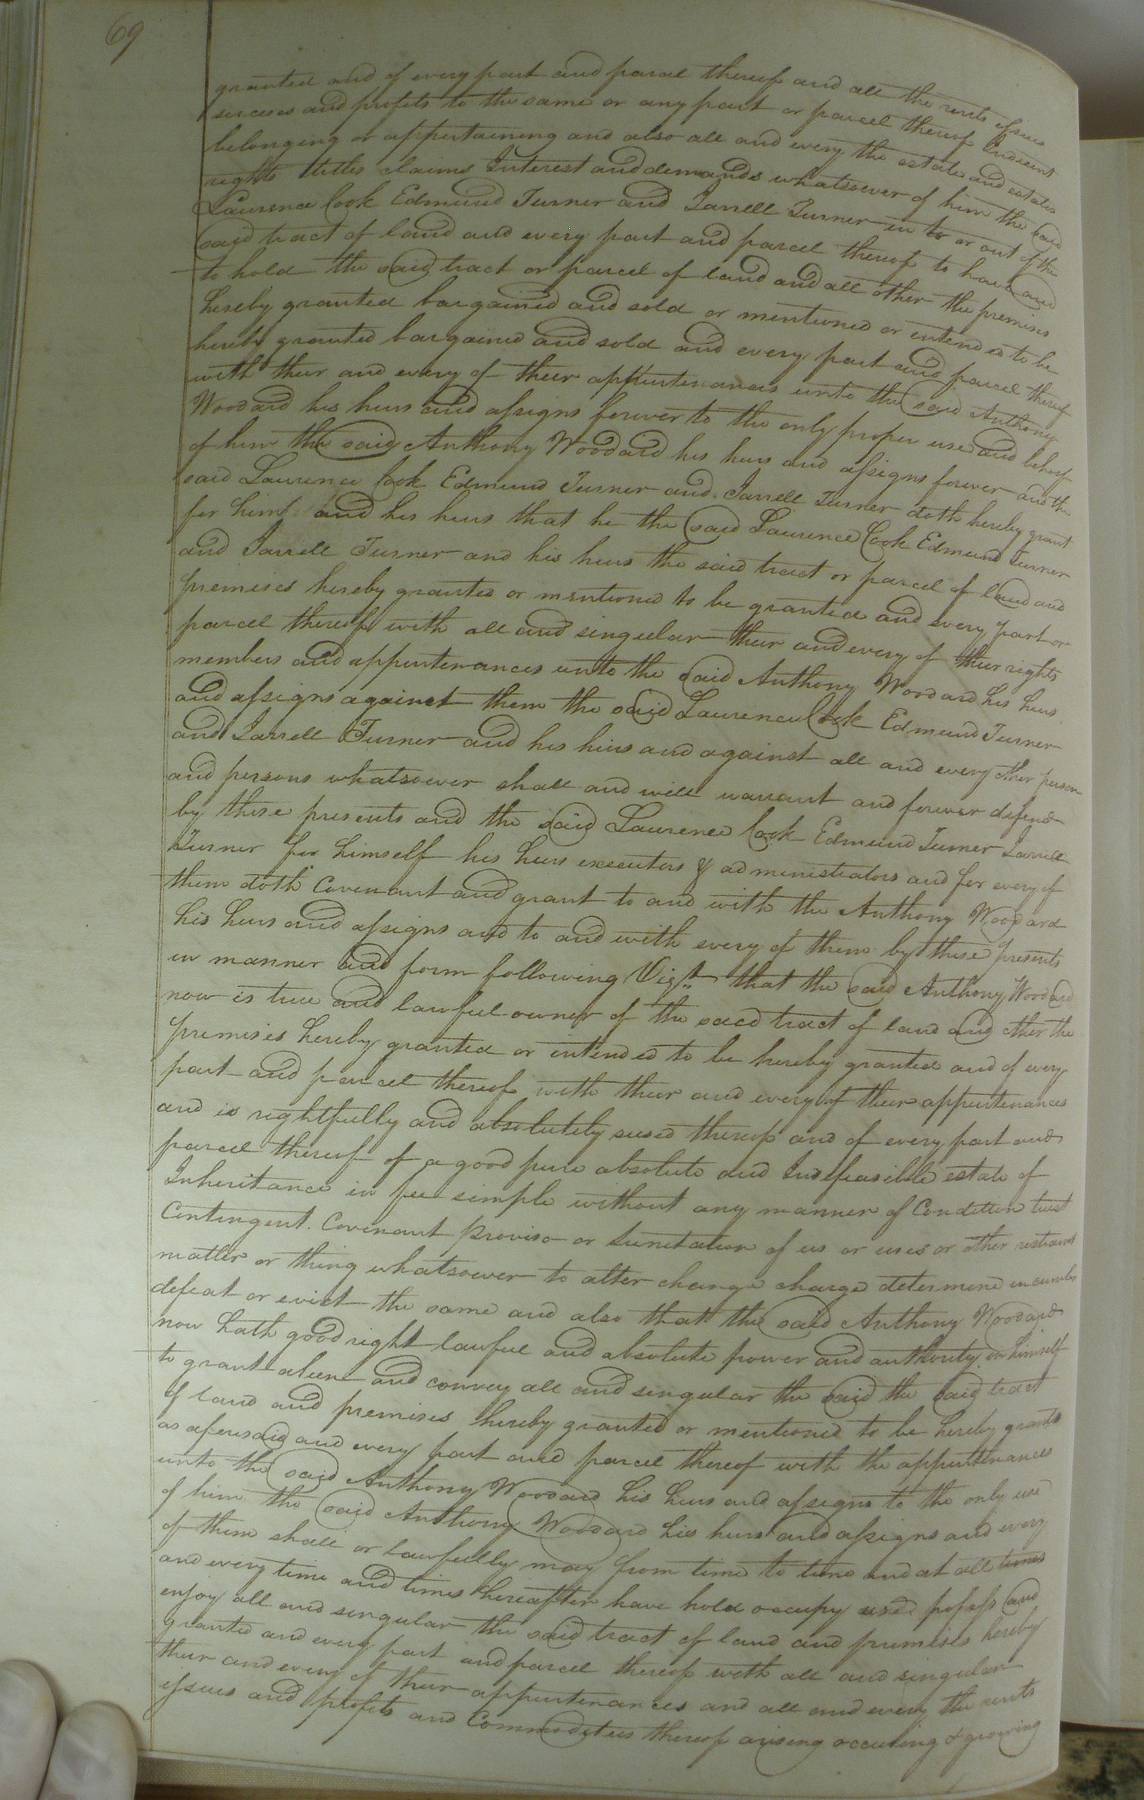 69
granted and of every part and parcel thereof and all the rents issues
services and profits to the same or any part or parcel thereof Incident
belonging or appertaining and also all and every the estate and estates
rights titles claims Interest and demands whatsoever of him the said
Laurence Cook Edmund Turner and Jarrell Turner in to or out of the
said tract of land and every part and parcel thereof to have and
to hold the said tract or parcel of land and all other the premises
hereby granted bargained and sold or mentioned or intended to be
hereby granted bargained and sold and every part and parcel thereof
with their and every of their appurtenances unto the said Anthony
Woodard his heirs and assigns forever to the only proper use and behoof
of him the said Anthony Woodard his heirs and assigns forever and the
said Laurence Cook Edmund Turner and Jarrell Turner doth hereby grant
for himf and his heirs that he the said Laurence Cook Edmund Turner
and Jarrell Turner and his heirs the said tract or parcel of land and
premises hereby granted or mentioned to be granted and every part or
parcel thereof with all and singular their and every of their rights
members and appurtenances unto the said Anthony Woodard his heirs
and assigns against them the said Laurence Cook Edmund Turner
and Jarrell Turner and his heirs and against all and every other person
and persons whatsoever shall and will warrant and forever defend
by these presents and the said Laurence Cook Edmund Turner Jarrell
Turner for himself his heirs executors & administrators and for every of
them doth Covenant and grant to and with the Anthony Woodard
his heirs and assigns and to and with every of them by these presents
in manner and form following Vizt. that the said Anthony Woodard
now is true and lawful owner of the said tract of land and other the
premises hereby granted or intended to be hereby granted and of every
part and parcel thereof with their and every of their appurtenances
and is rightfully and absolutely seised thereof and of every part and
parcel thereof of a good pure absolute and Indefeasible estate of
Inheritance in fee simple without any manner of Condition trust
Contingent Covenant Proviso or Limitation of us or uses or other restraint
matter or thing whatsoever to alter change charge determine incumber
defeat or evict the same and also that the said Anthony Woodard
now hath good right lawful and absolute power and authority in himself
to grant alien and convey all and singular the said the said tract
of land and premises hereby granted or mentioned to be hereby granted
as aforesaid and every part and parcel thereof with the appurtenances
unto the said Anthony Woodard his heirs and assigns to the only use
of him the said Anthony Woodard his heirs and assigns and every
of them shall or lawfully may from time to time and at all times
and every time and times hereafter have hold occupy used possess and
enjoy all and singular the said tract of land and premises hereby
granted and every part and parcel thereof with all and singular
their and every of their appurtenances and all and every the rents
issues and profits and Commodities thereof arising occuring & growing